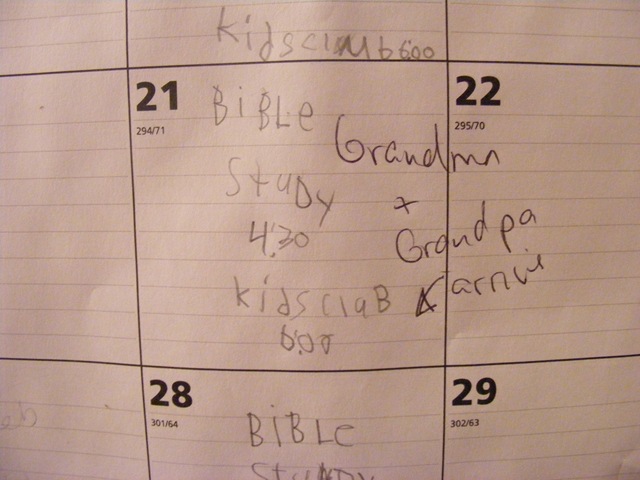 Kidsclub 6:00
21
294/71
BiBLe
StuDy
4:30
KidscluB
6:00
Grandma
+
Grandpa
22
295/70
28
301/64
BiBLe
StuDy
29
302/63